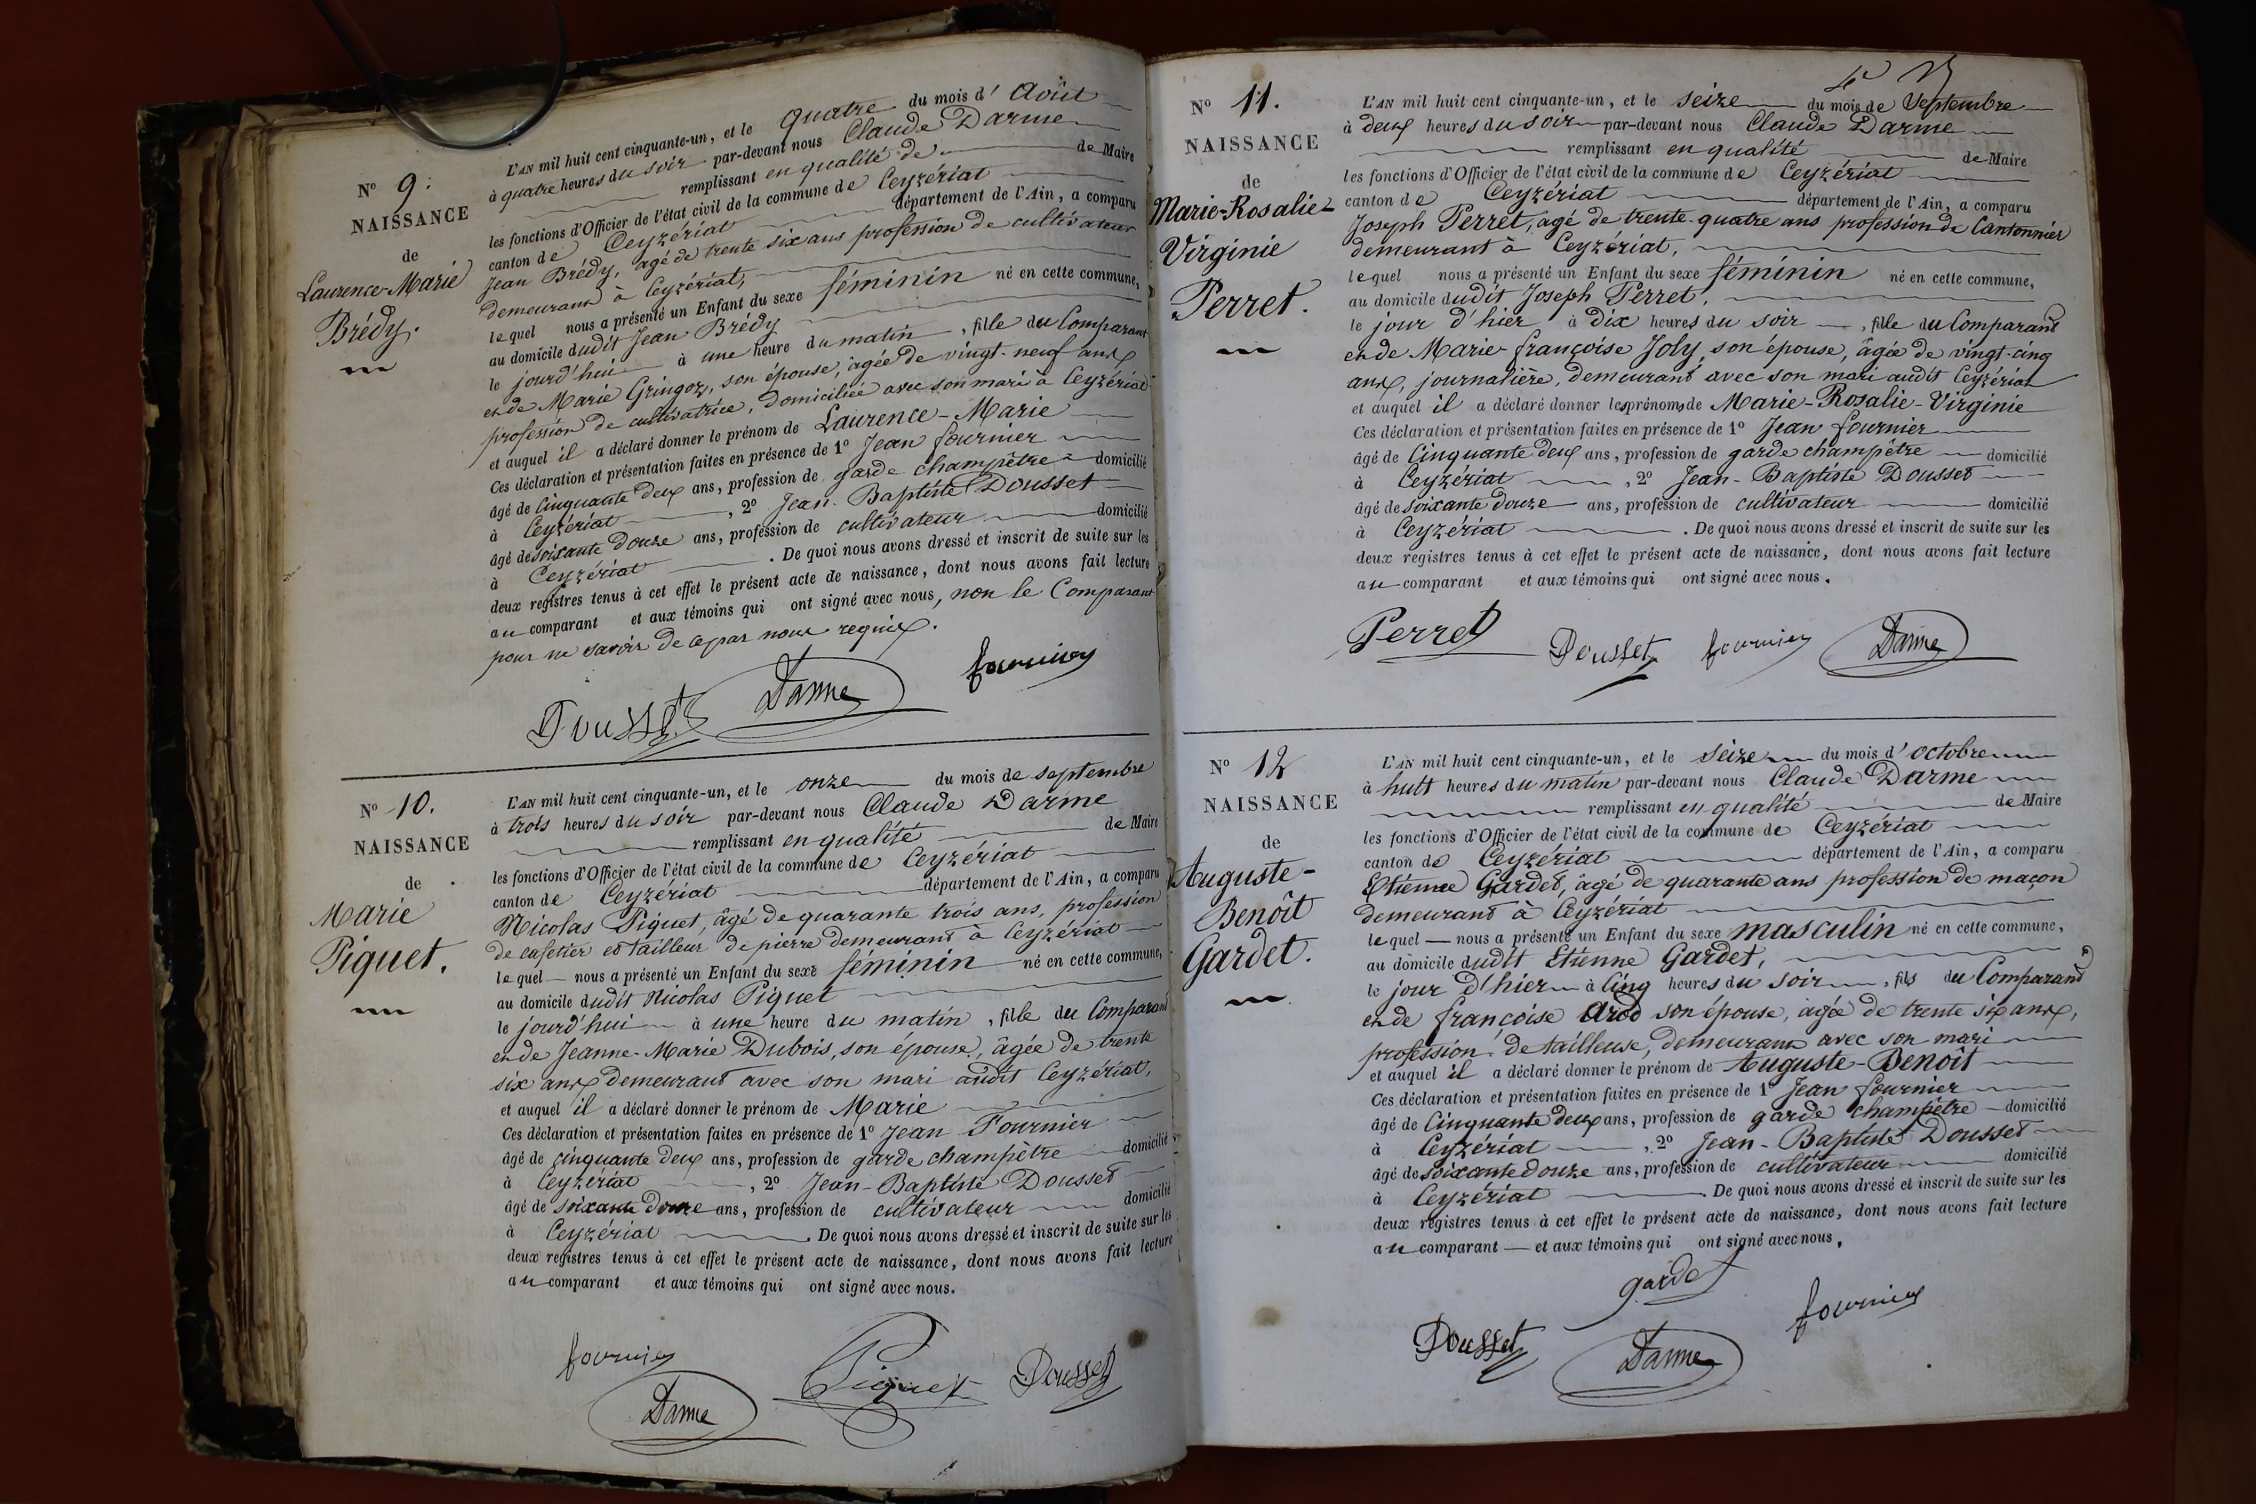 N° 9.
NAISSANCE
de
Laurence-Marie
Brédy.
L'AN mil huit cent cinquante-un, et le quatre du mois d' Août
à quatre heures du soir par-devant nous Claude Darme
remplissant en qualité de de Maire
les fonctions d'Officier de l'état civil de la commune de Ceyzériat
canton de Ceyzériat département de l'Ain, a comparu
Jean Brédy, agé de trente six ans profession de cultivateur
demeurant à Ceyzériat,
lequel nous a présenté un Enfant du sexe féminin né en cette commune,
au domicile dudit Jean Brédy
le jourd'hui à une heure du matin, fille du Comparant
et de Marie Gringoz, son épouse, âgée de vingt-neuf ans,
profession de cultivatrice, domiciliée avec son mari à Ceyzériat
et auquel il a déclaré donner le prénom de Laurence-Marie
Ces déclaration et présentation faites en présence de 1° Jean fournier
âgé de Cinquante deux ans, profession de garde champêtre domicilié
à Ceyzériat, 2° Jean-Baptiste Dousset
âgé de soixante douze ans, profession de cultivateur domicilié
à Ceyzériat. De quoi nous avons dressé et inscrit de suite sur les
deux registres tenus à cet effet le présent acte de naissance, dont nous avons fait lecture
au comparant et aux témoins qui ont signé avec nous, non le Comparant
pour ne savoir de ce par nous requis.
Dousset Darme fournier
N° 10.
NAISSANCE
de
Marie
Piquet.
L'AN mil huit cent cinquante-un, et le onze du mois de septembre
à trois heures du soir par-devant nous Claude Darme
remplissant en qualité de Maire
les fonctions d'Officier de l'état civil de la commune de Ceyzériat
canton de Ceyzériat département de l'Ain, a comparu
Nicolas Piquet, âgé de quarante trois ans, profession
de cafetier et tailleur de pierre demeurant à Ceyzériat
lequel nous a présenté un Enfant du sexe féminin né en cette commune,
au domicile dudit Nicolas Piquet
le jourd'hui à une heure du matin, fille du Comparant
et de Jeanne-Marie Dubois, son épouse, âgée de trente
six ans demeurant avec son mari audit Ceyzériat,
et auquel il a déclaré donner le prénom de Marie
Ces déclaration et présentation faites en présence de 1° Jean Fournier
âgé de cinquante deux ans, profession de garde champêtre domicilié
à Ceyzériat, 2° Jean-Baptiste Dousset
âgé de soixante douze ans, profession de cultivateur domicilié
à Ceyzériat. De quoi nous avons dressé et inscrit de suite sur les
deux registres tenus à cet effet le présent acte de naissance, dont nous avons fait lecture
au comparant et aux témoins qui ont signé avec nous.
fournier Darme Piquet Dousset
N° 11.
NAISSANCE
de
Marie-Rosalie-
Virginie
Perret.
L'AN mil huit cent cinquante-un, et le seize du mois de Septembre
à deux heures du soir par-devant nous Claude Darme
remplissant en qualité de Maire
les fonctions d'Officier de l'état civil de la commune de Ceyzériat
canton de Ceyzériat département de l'Ain, a comparu
Joseph Perret, agé de trente-quatre ans profession de Cantonnier
demeurant à Ceyzériat,
lequel nous a présenté un Enfant du sexe féminin né en cette commune,
au domicile dudit Joseph Perret,
le jour d'hier à dix heures du soir, fille du Comparant
et de Marie-françoise Joly, son épouse, âgée de vingt-cinq
ans, journalière, demeurant avec son mari audit Ceyzériat
et auquel il a déclaré donner les prénoms de Marie-Rosalie-Virginie
Ces déclaration et présentation faites en présence de 1° Jean fournier
âgé de Cinquante deux ans, profession de garde champêtre domicilié
à Ceyzériat, 2° Jean-Baptiste Dousset
âgé de soixante douze ans, profession de cultivateur domicilié
à Ceyzériat. De quoi nous avons dressé et inscrit de suite sur les
deux registres tenus à cet effet le présent acte de naissance, dont nous avons fait lecture
au comparant et aux témoins qui ont signé avec nous.
Perret Dousset fournier Darme
N° 12
NAISSANCE
de
Auguste-
Benoît
Gardet.
L'AN mil huit cent cinquante-un, et le seize du mois d'octobre
à huit heures du matin par-devant nous Claude Darme
remplissant en qualité de Maire
les fonctions d'Officier de l'état civil de la commune de Ceyzériat
canton de Ceyzériat département de l'Ain, a comparu
Etienne Gardet, âgé de quarante ans profession de maçon
demeurant à Ceyzériat
lequel nous a présenté un Enfant du sexe masculin né en cette commune,
au domicile dudit Etienne Gardet,
le jour d'hier à Cinq heures du soir, fils du Comparant
et de françoise Arod son épouse, âgée de trente six ans,
profession de tailleuse, demeurant avec son mari
et auquel il a déclaré donner le prénom de Auguste-Benoît
Ces déclaration et présentation faites en présence de 1° Jean fournier
âgé de Cinquante deux ans, profession de garde champêtre domicilié
à Ceyzériat, 2° Jean-Baptiste Dousset
âgé de soixante douze ans, profession de cultivateur domicilié
à Ceyzériat. De quoi nous avons dressé et inscrit de suite sur les
deux registres tenus à cet effet le présent acte de naissance, dont nous avons fait lecture
au comparant et aux témoins qui ont signé avec nous.
gardet
Dousset Darme fournier